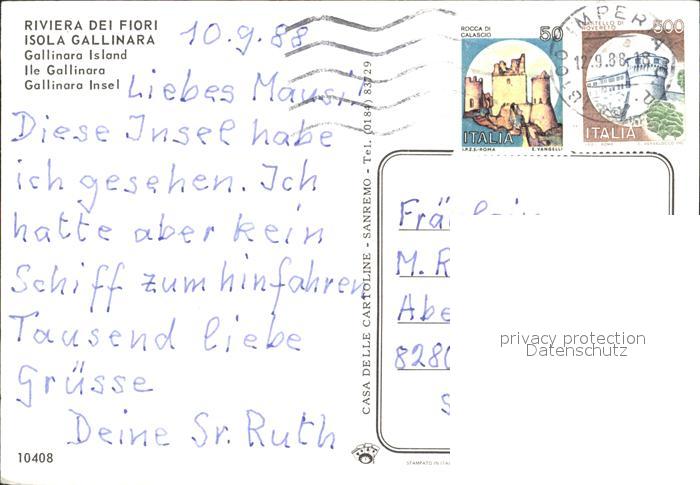 RIVIERA DEI FIORI
ISOLA GALLINARA
Gallinara Island
Ile Gallinara
Gallinara Insel
10.9.88
Liebes Mausi!
Diese Insel habe
ich gesehen. Ich
hatte aber kein
Schiff zum hinfahren
Tausend liebe
Grüsse
Deine Sr. Ruth
10408
CASA DELLE CARTOLINE - SANREMO - Tel. (0184) 83129
ROCCA DI
CALASCIO
50
ITALIA
I.P.Z.S.-ROMA E. VANGELLI
CASTELLO DI
ROVERETO
500
ITALIA
IMPERIA
12.9.88-18
Fräulein
M. R
Abe
828
S
privacy protection
Datenschutz
STAMPATO IN ITA